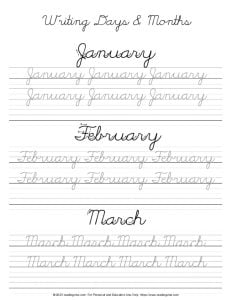 Writing Days & Months
January
January January January
January January January
February
February February February
February February February
March
March March March March
March March March March